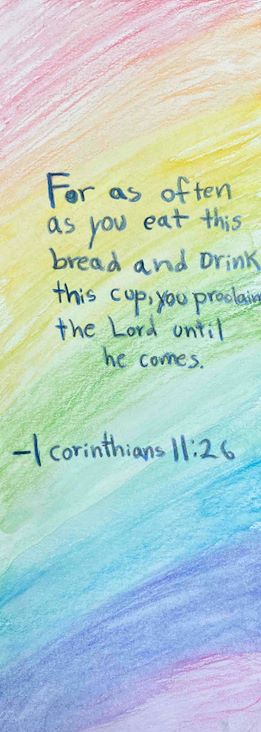 For as often
as you eat this
bread and Drink
this cup, you proclaim
the Lord until
he comes.
-1 corinthians 11:26